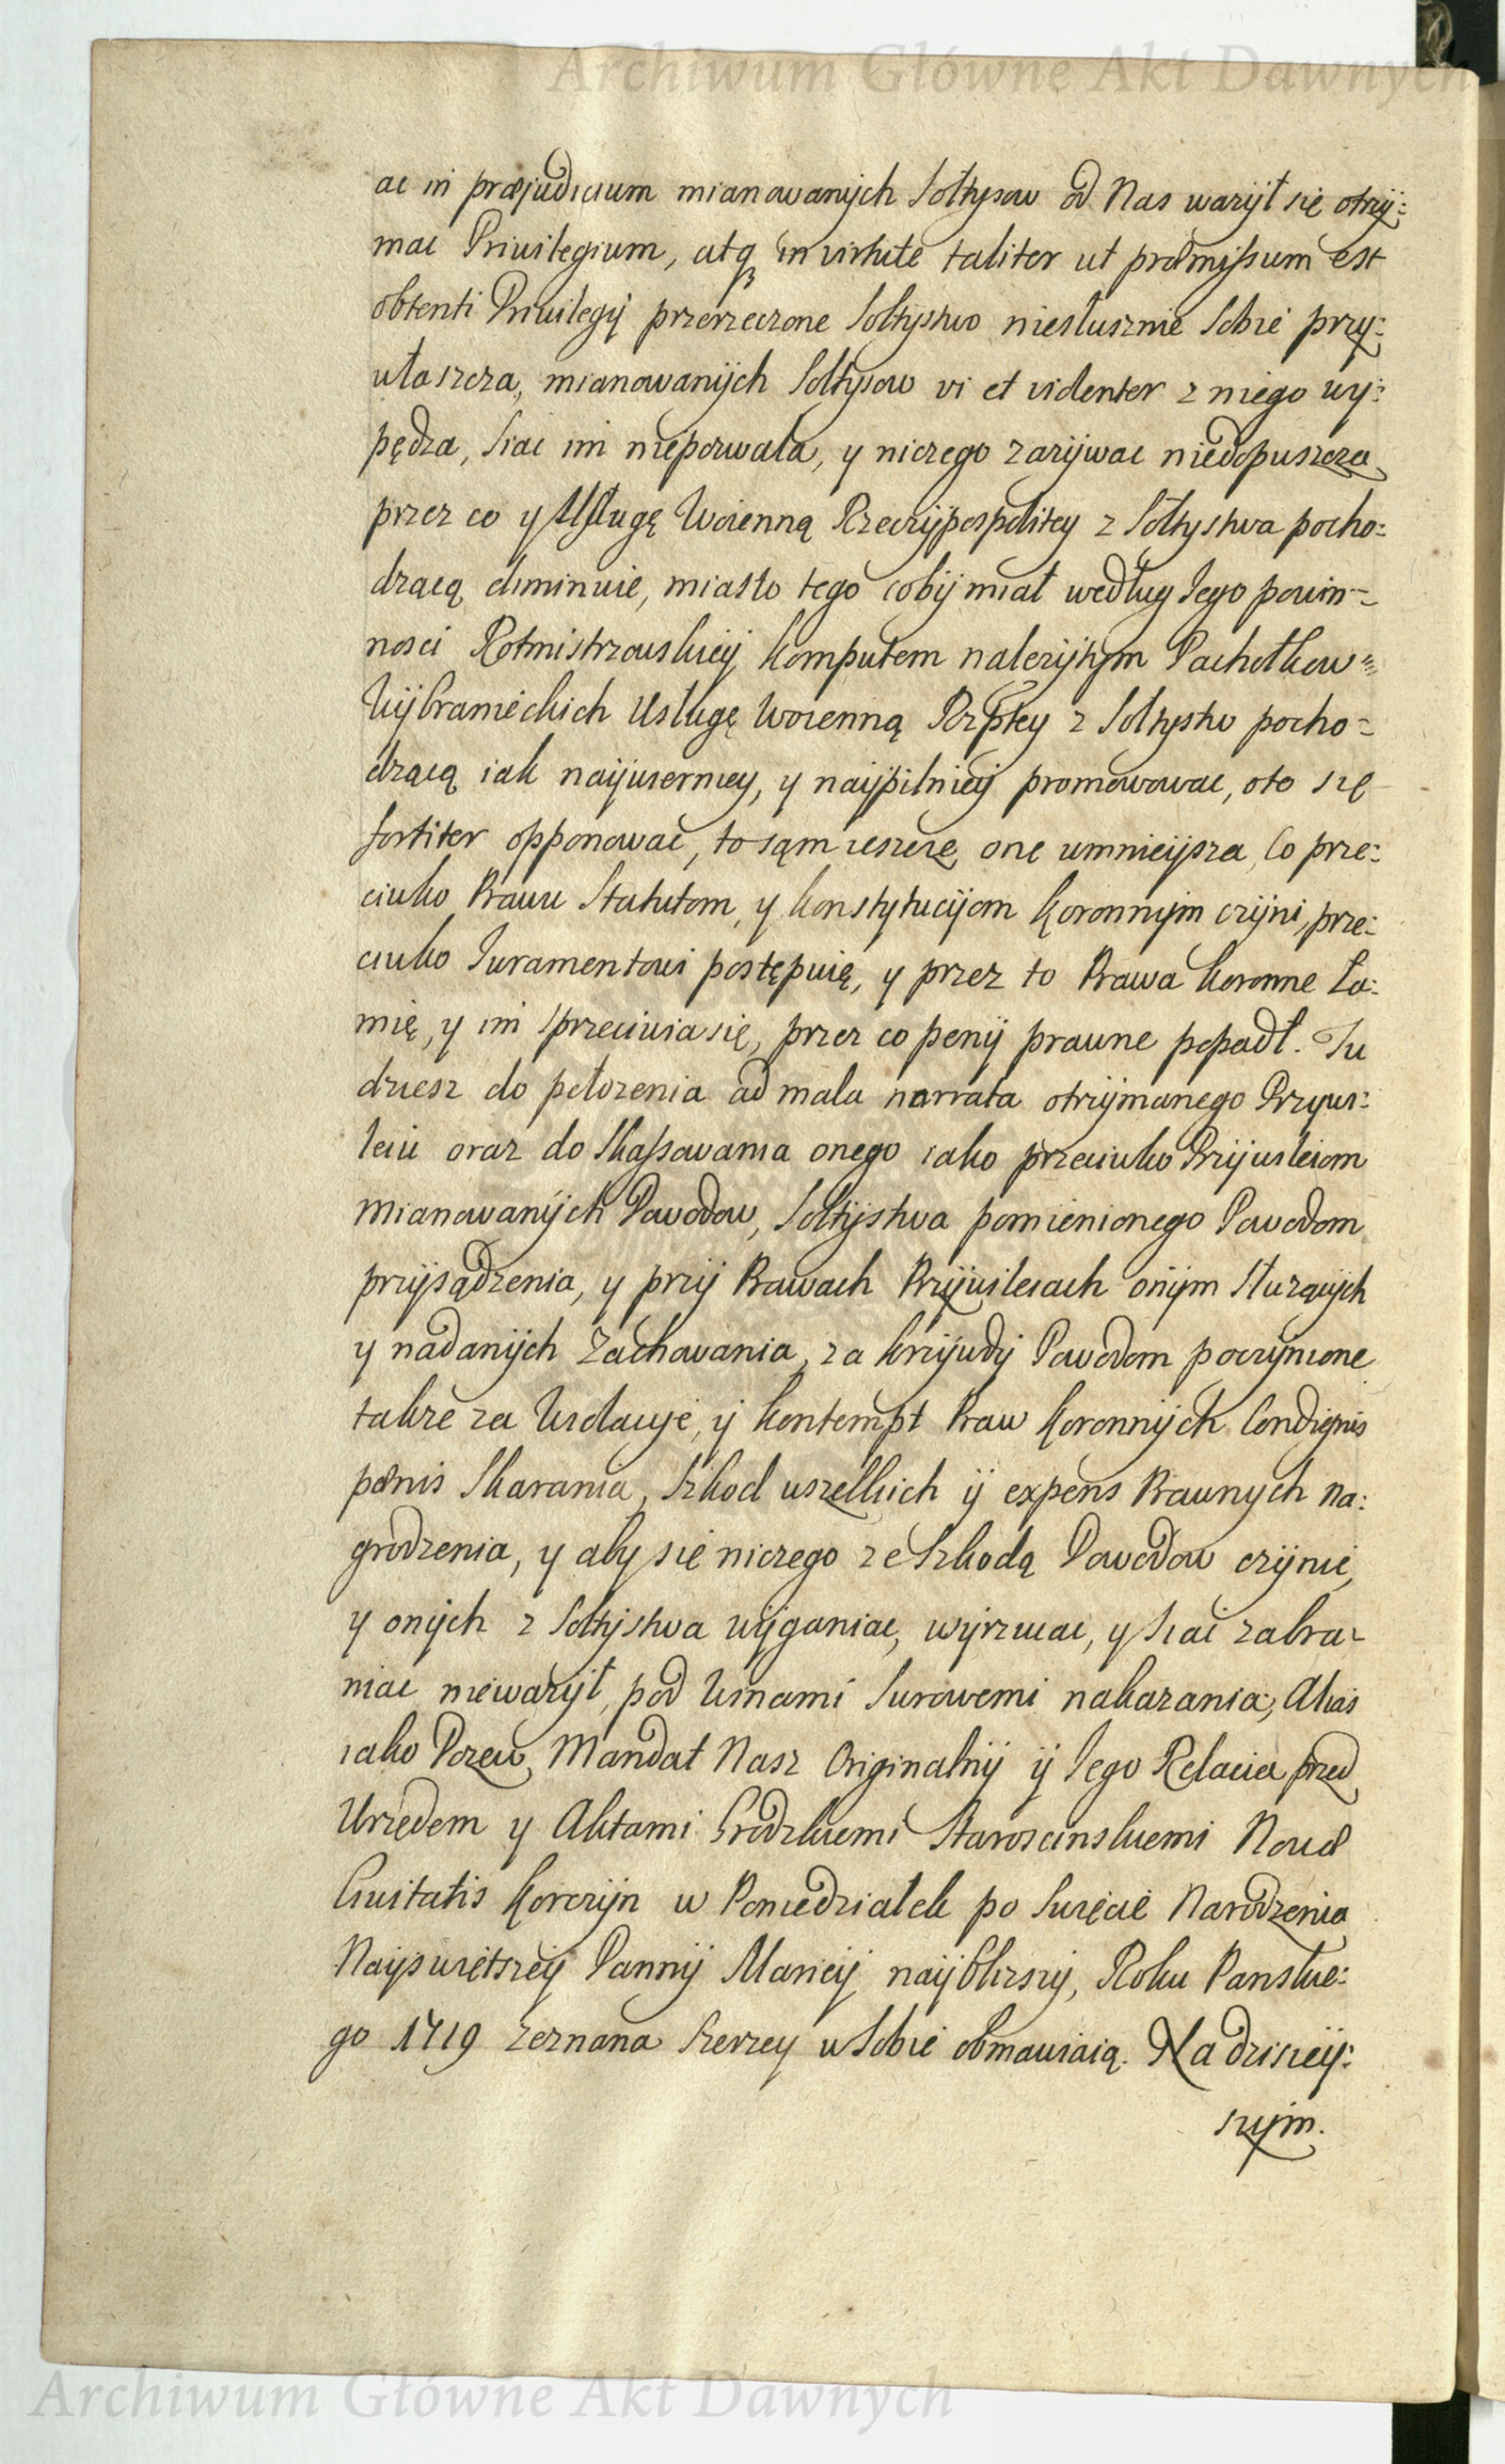 Archiwum Główne Akt Dawnych
ac in præjudicium mianowanÿch Sołtysow od Nas ważÿł się otrzÿ:
mac Priuilegium, atq₃ in virtute taliter ut præmissum est
obtenti Priuilegÿ przerzeczone Sołtystwo niesłusznie Sobie przy:
ułaszcza, mianowanÿch Sołtysow vi et violenter z niego wy:
pędza, Siac im niepozwala, y niczego zazÿwac niedopuszcza
przez co y Usługę Woienną Rzeczÿpospolitey z Sołtystwa pocho:
dzącą diminuie, miasto tego cobÿ miał według Jego powin-
nosci Rotmistrzowskieÿ komputem nalezÿtym Pachołkow
Wÿbranieckich Usługę Woienną Rzptey z Sołtystw pocho-
dzącą iak naÿwierniey, y naÿpilnieÿ promowowac, oto się
fortiter opponowac, to sąm ieszcze one umnieÿsza, Co prze:
ciwko Prawu Statutom, y konstytucÿom Koronnÿm czÿni, prze:
ciwko Juramentowi postępuię, y przez to Prawa koronne ła:
mię, y im Sprzeciwia się, przez co penÿ prawne popadł. Tu
dziesz do położenia ad mala narrata otrzÿmanego Przywi:
leiu oraz do Skassowania onego iako przeciwko Przÿwileiom
mianowanÿch Powodow, Sołtÿstwa pomienionego Powodom
przÿsądzenia, y przÿ Prawach Przÿwileiach onÿm słuzących
y nadanÿch Zachowania, za krzÿwdÿ Powodom poczÿnione
takze za Wiolacÿe, ÿ kontempt Praw Koronnÿch Condignis
pœnis Skarania, Szkod wszelkich ÿ expens Prawnych na:
grodzenia, y aby się niczego ze Szkodą Powodow czÿnic,
y onÿch z Sołtÿstwa wÿganiac, wÿrzucac, y Siac zabra-
niac nieważÿł, pod Winami Surowemi nakazania, Alias
iako Pozew, Mandat Nasz Originalnÿ ÿ Jego Relacia przed
Urzędem y Aktami Grodzkiemi Staroscinskiemi Novæ
Civitatis Korczÿn w Poniedziałek po Swięcie Narodzenia
Nayswiętszeÿ Pannÿ Marieÿ naÿblizszÿ, Roku Panskie:
go 1719 zeznana Szerzey w Sobie obmawiaią. Na dzisieÿ:
szÿm.
Archiwum Główne Akt Dawnych